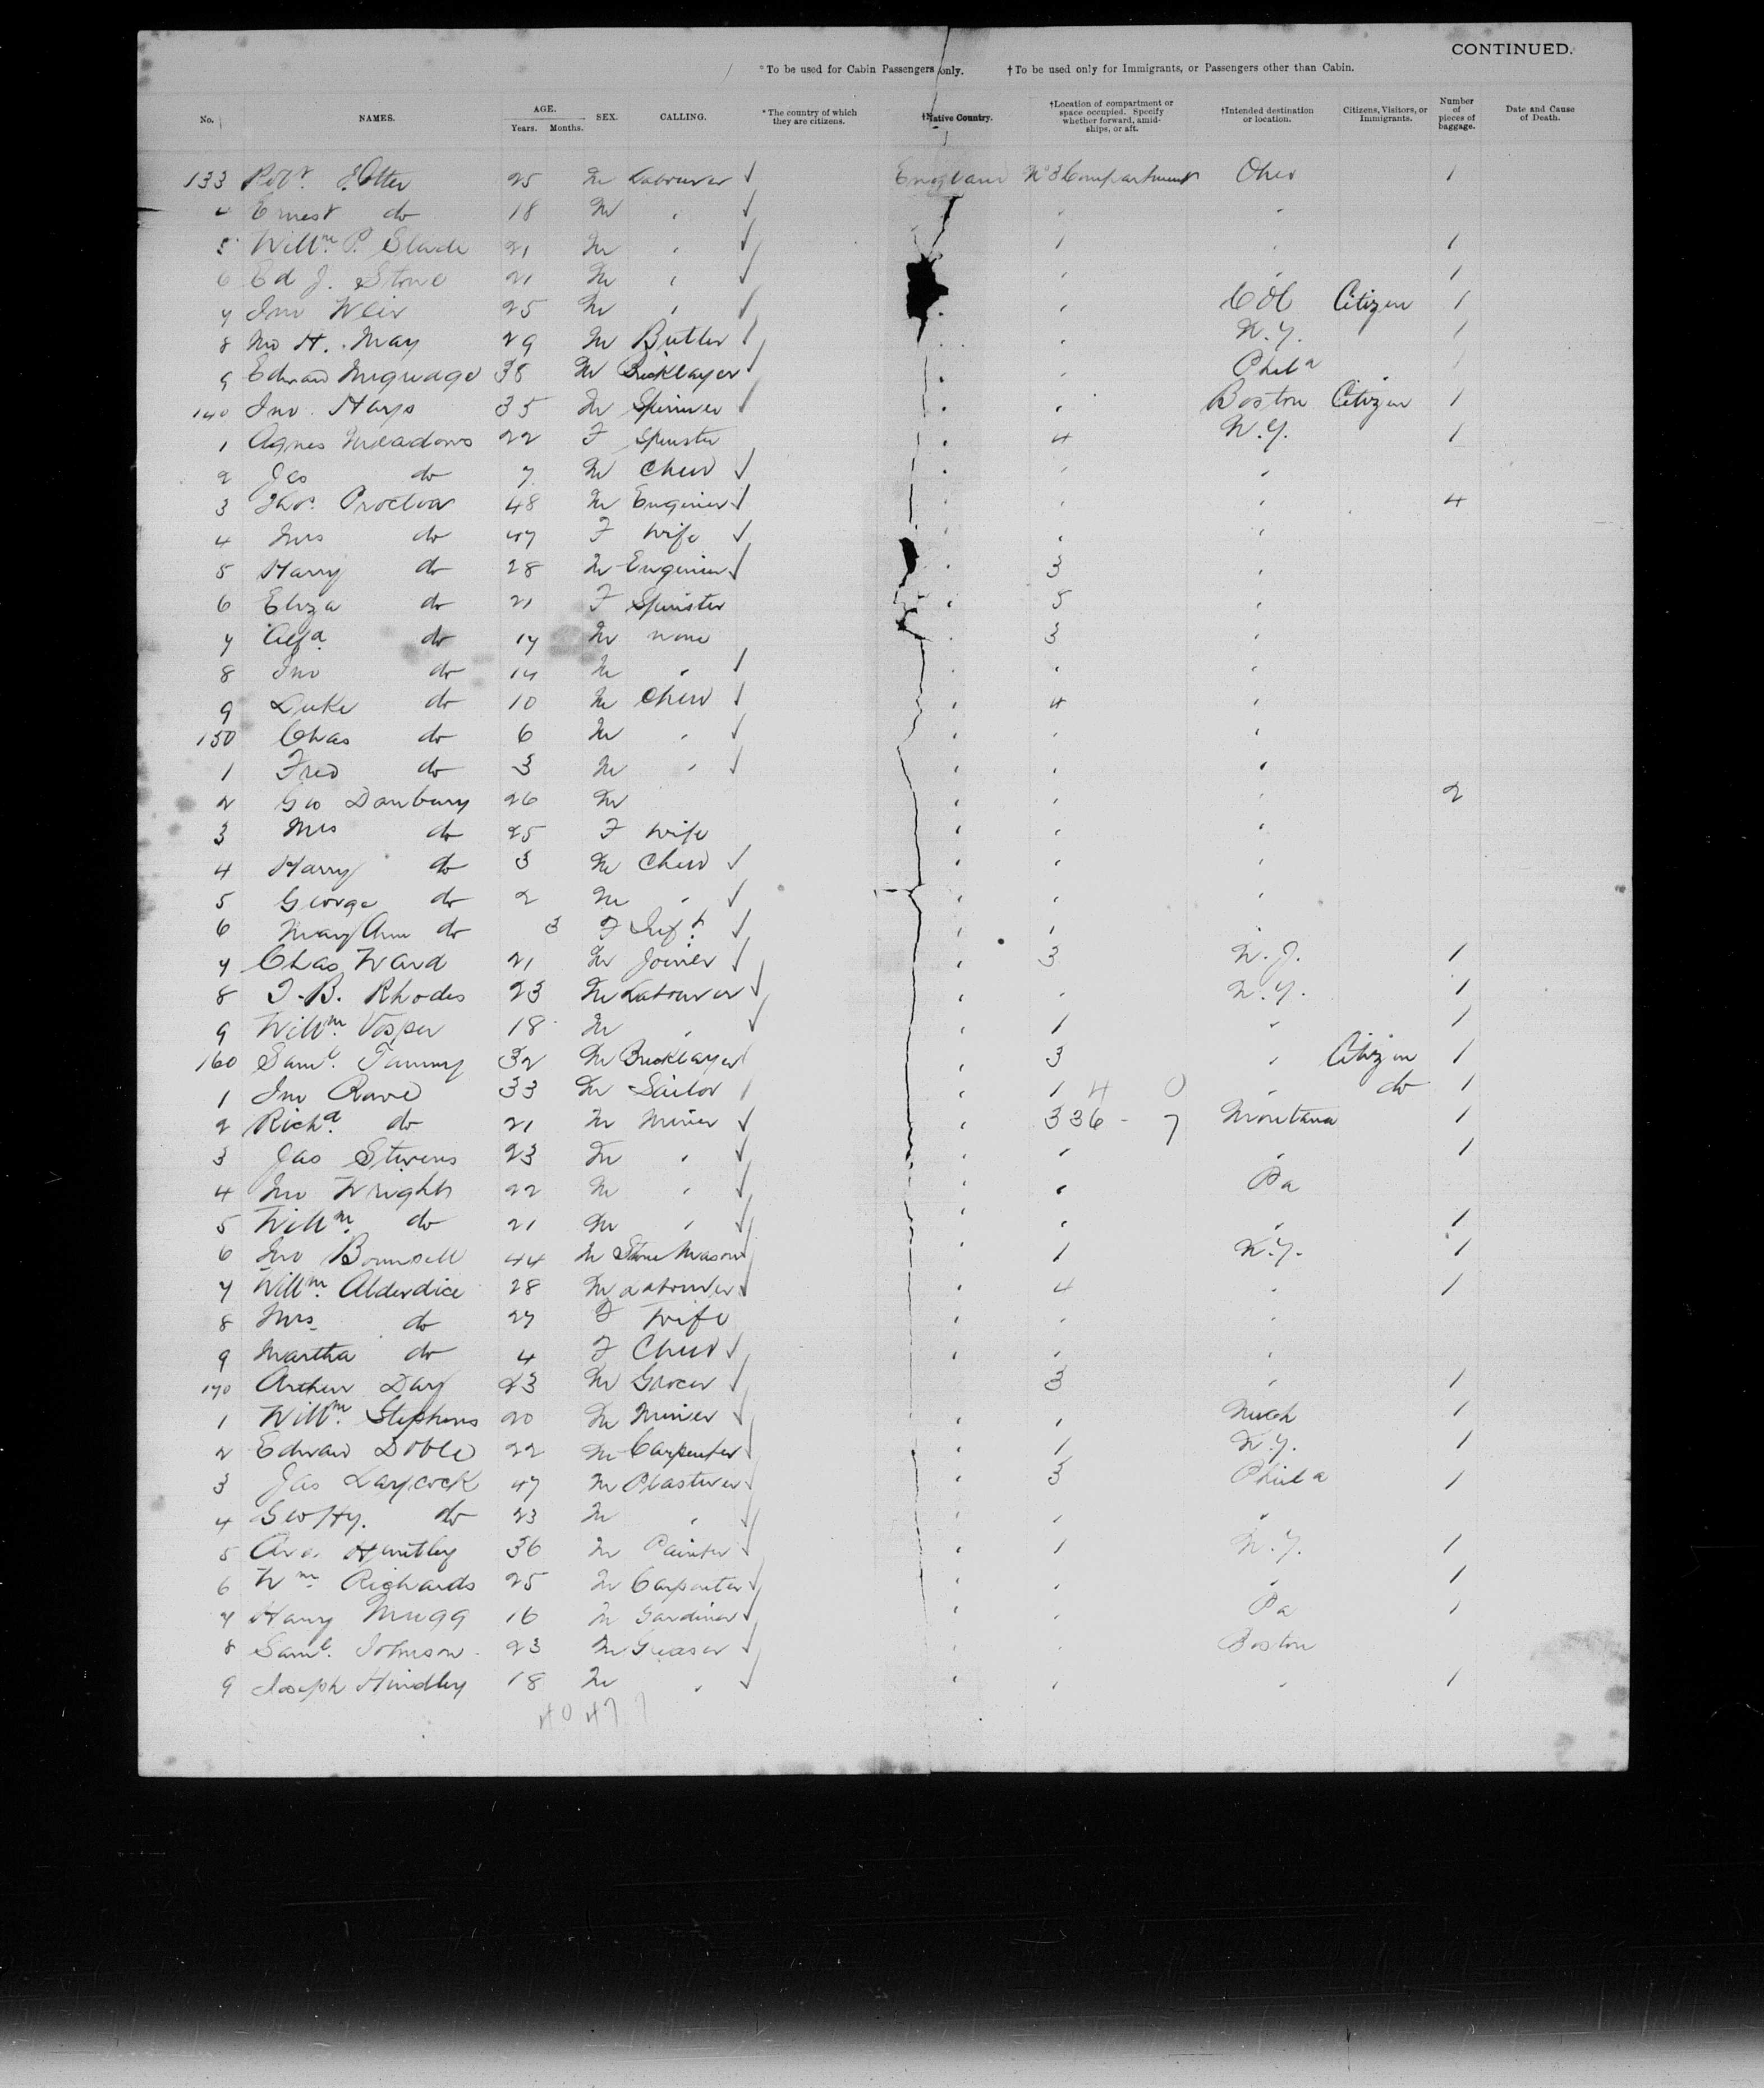 CONTINUED.
*To be used for Cabin Passengers only. †To be used only for Immigrants, or Passengers other than Cabin.
No. NAMES. AGE. Years. Months. SEX. CALLING. *The country of which they are citizens. †Native Country. †Location of compartment or space occupied. Specify whether forward, amidships, or aft. †Intended destination or location. Citizens, Visitors, or Immigrants. Number of pieces of baggage. Date and Cause of Death.
133 Robt. Otter 25 M Labourer England No 3 Compartment Ohio 1
4 Ernest do 18 M
5 Willm. P. Slade 21 M 1 1
6 Ed J. Stone 21 M 1
7 Jno Weir 25 M Citizen 1
8 Jno H. May 29 M Butler N.Y. 1
9 Edward 38 M Bricklayer Phila 1
140 Jno. Hays 35 M Spinner Boston Citizen 1
1 Agnes Meadows 22 F Spinster 4 N.Y. 1
2 Jas do 7 M Child
3 Thos. Proctor 48 M Engineer 4
4 Mrs do 47 F Wife
5 Harry do 28 M Engineer 3
6 Eliza do 21 F Spinster 5
7 Alfd. do 17 M none 3
8 Jno do 14 M
9 Luke do 10 M Child 4
150 Chas do 6 M
1 Fred do 3 M
2 Geo Danbury 26 M 2
3 Mrs do 25 F Wife
4 Harry do 3 M Child
5 George do 2 M
6 Mary Ann do 3 F Inft.
7 Chas Ward 21 M Joiner 3 N.J. 1
8 J. B. Rhodes 23 M Labourer N.Y. 1
9 Willm. Vosper 18 M 1 1
160 Saml. Tammy 32 M Bricklayer 3 Citizen 1
1 Jno Rowe 33 M Sailor 1 4 0 do 1
2 Richd. do 21 M Miner 336 - 7 Montana 1
3 Jas Stevens 23 M 1
4 Jno Wright 22 M Pa
5 Willm. do 21 M 1
6 Jno Bounsell 44 M Stone Mason 1 N.Y. 1
7 Willm. Alderdice 28 M Labourer 4 1
8 Mrs do 27 F Wife
9 Martha do 4 F Child
170 Arthur Day 23 M Grocer 3 1
1 Willm. Stephens 20 M Miner Mich 1
2 Edward Doble 22 M Carpenter 1 N.Y. 1
3 Jas Laycock 47 M Plasterer 3 Phila 1
4 Geo Hy. do 23 M
5 Huntley 36 M Painter 1 N.Y. 1
6 Wm Richards 25 M Carpenter 1
7 Harry Mugg 16 M Gardiner Pa 1
8 Saml. Johnson 23 M Greaser Boston
9 Joseph Hindley 18 M 1